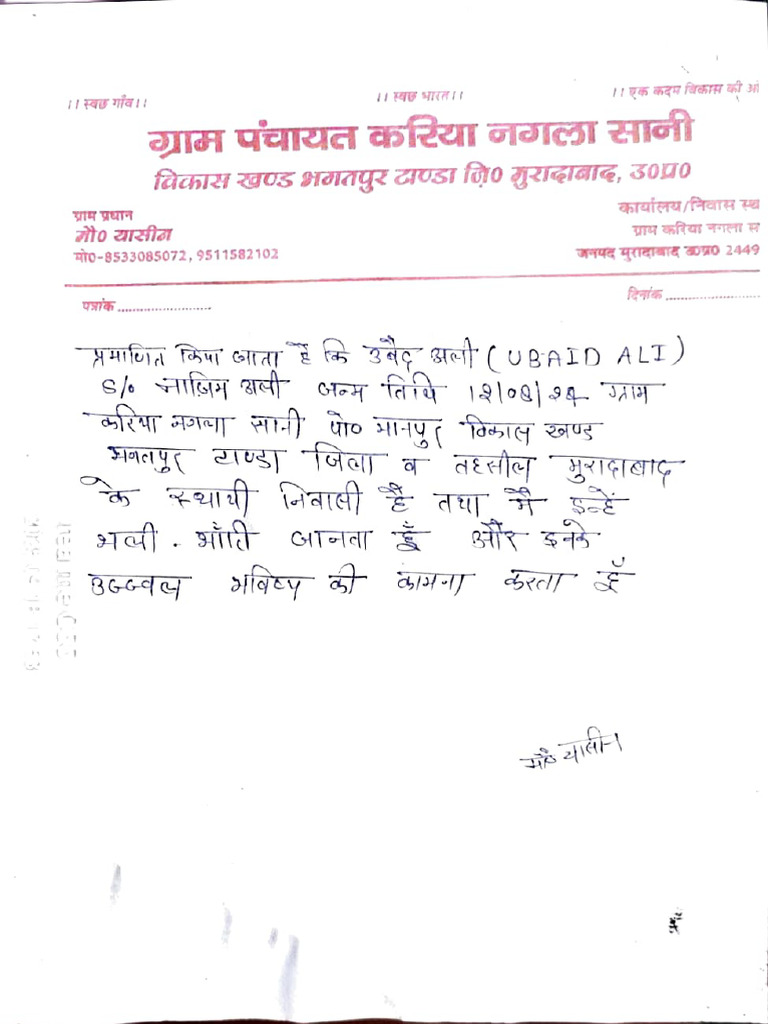 ।। स्वछ गाँव।। ।। स्वछ भारत।। ।। एक कदम विकास की ओ
ग्राम पंचायत करिया नगला सानी
विकास खण्ड भगतपुर टाण्डा ज़ि० मुरादाबाद, उ०प्र०
ग्राम प्रधान
मौ० यासीन
मो०-8533085072, 9511582102
कार्यालय/निवास स्थ
ग्राम करिया नगला स
जनपद मुरादाबाद उ०प्र० 2449
पत्रांक ........................
दिनांक ........................
प्रमाणित किया जाता है कि उबैद अली (UBAID ALI)
S/० नाजिम अली जन्म तिथि ग्राम
करिया नगला सानी पो० मानपुर विकास खण्ड
भगतपुर टाण्डा जिला व तहसील मुरादाबाद
के स्थायी निवासी है तथा मै इन्हें
भली - भाँति जानता हूँ और इनके
उज्ज्वल भविष्य की कामना करता हूँ
मौ० यासीन